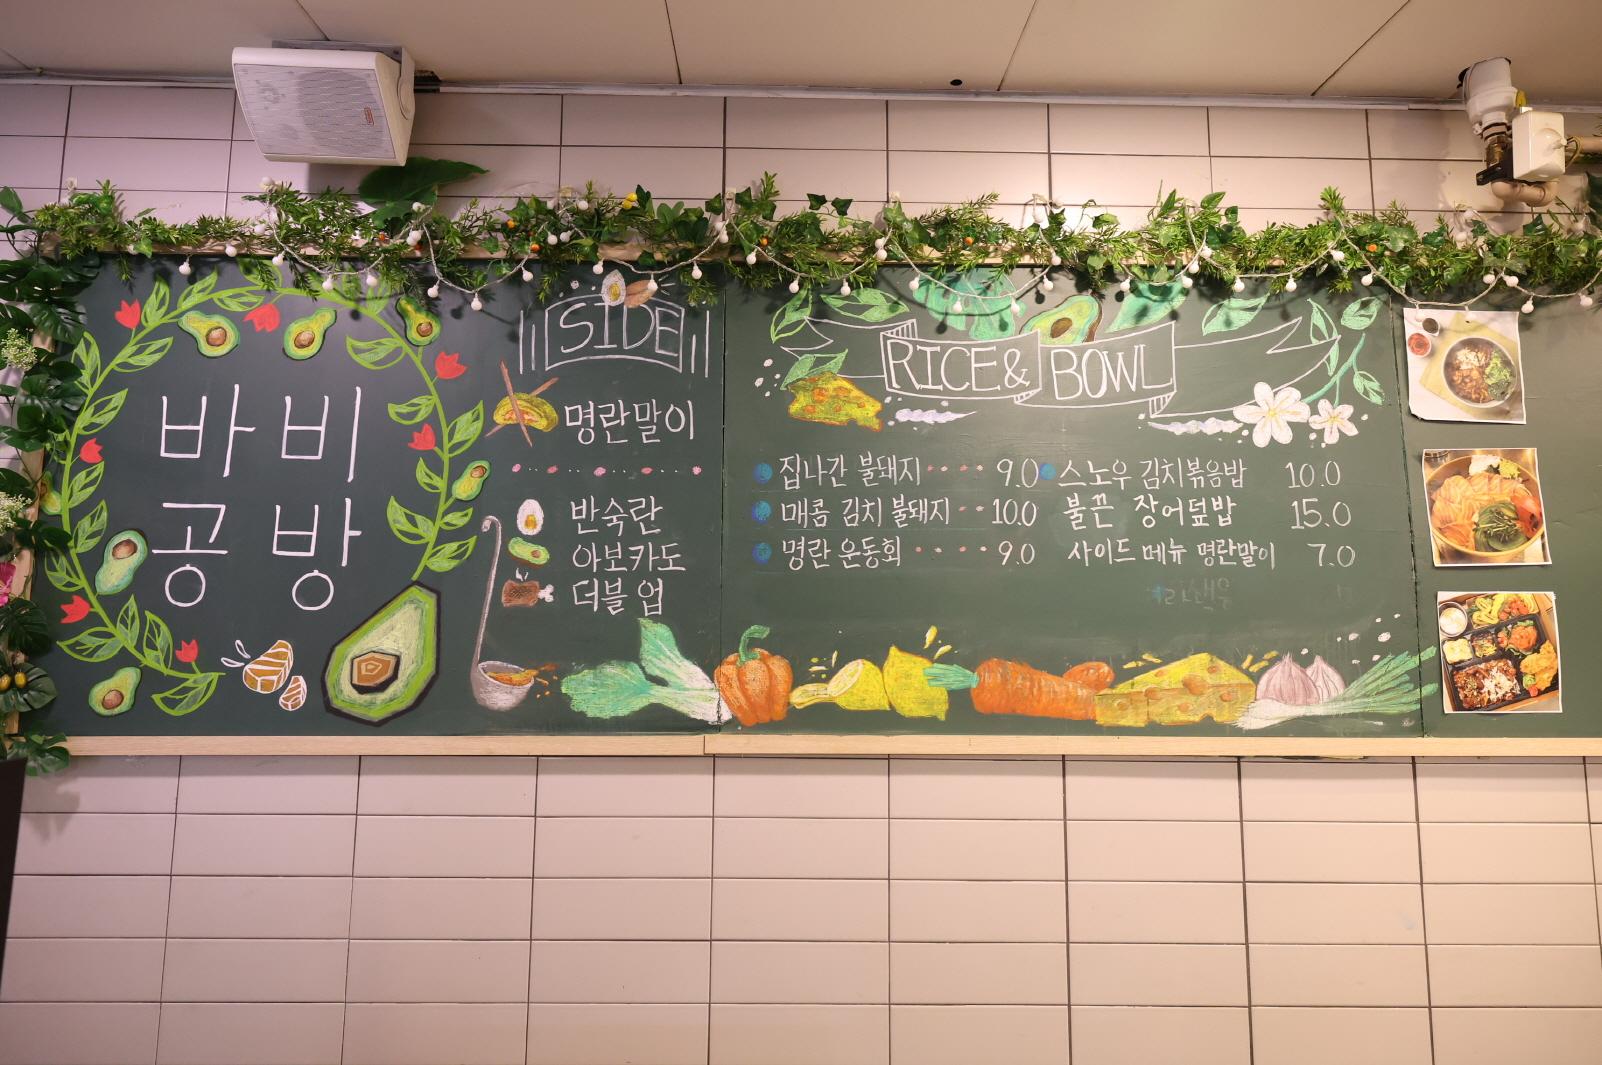 바비
공방
SIDE
명란말이
반숙란
아보카도
더블 업
RICE & BOWL
집나간 불돼지 9.0
매콤 김치 불돼지 10.0
명란 운동회 9.0
스노우 김치볶음밥 10.0
불끈 장어덮밥 15.0
사이드 메뉴 명란말이 7.0